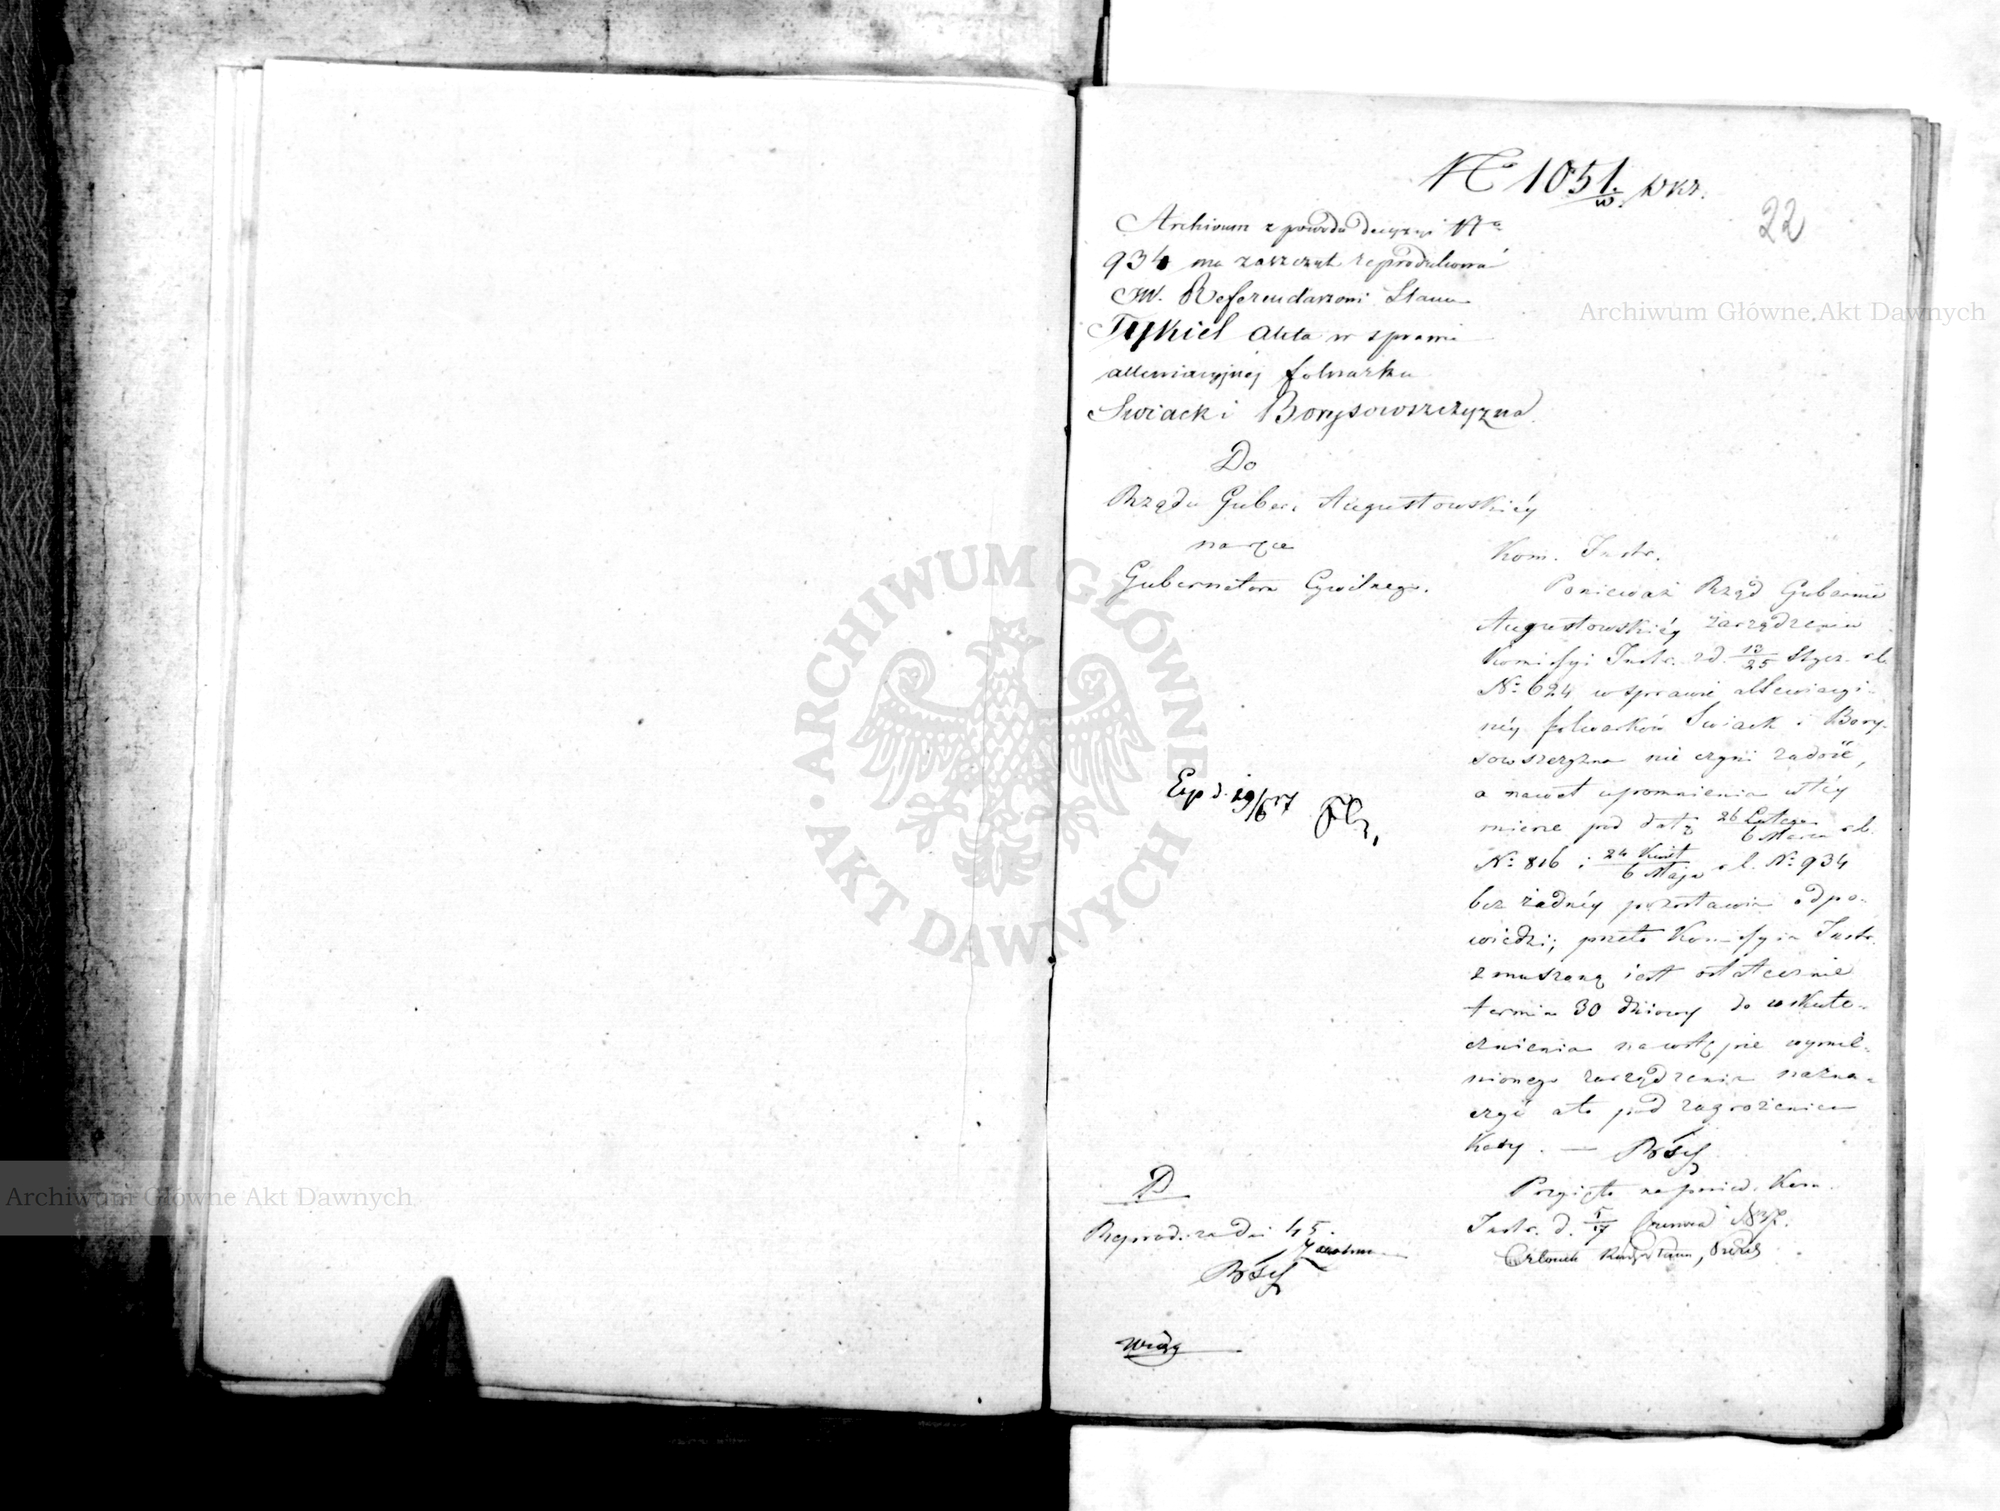 No 1051. wkr.
w.
22
Archiwum z powodu decyzyi No
934 ma zaszczyt reprodukować
JW. Referendarzowi Stanu
Tykiel Akta w sprawie
allewiacyjnej folwarku
Swiack i Borysowszczyzna.
Do
Rządu Guber. Augustowskiéy
na ręce
Gubernatora Cywilnego.
Exp d. 19/6 57
Kom. Instr.
Ponieważ Rząd Gubernii
Augustowskiéy zarządzeniu
Komisyi Instr. z d. 13/25 Stycz. r.b.
No 624 w sprawie allewiacyi-
néy folwarków Swiack i Bory-
sowszczyzna nie czyni zadość,
a nawet upomnienia w téy
mierze pod datą 26 Lutego / 6 Marca r.b.
No 816 i 24 Kwiet / 6 Maja r.b. No 934
bez żadnéy pozostawia odpo-
wiedzi; przeto Komisyia Instr.
zmuszoną iest ostatecznie
termin 30 dniowy do uskute-
cznienia nawstępie wymie-
nionego zarządzenia nazna-
czyć a to pod zagrożeniem
Kary. —
Przyięto na posied. Kom.
Instr. d. 5/17 Czerwca
Członek Radca Stanu,
D
Reprod. za dni 45.
Widzę
Archiwum Główne Akt Dawnych
Archiwum Główne Akt Dawnych
ARCHIWUM GŁÓWNE AKT DAWNYCH